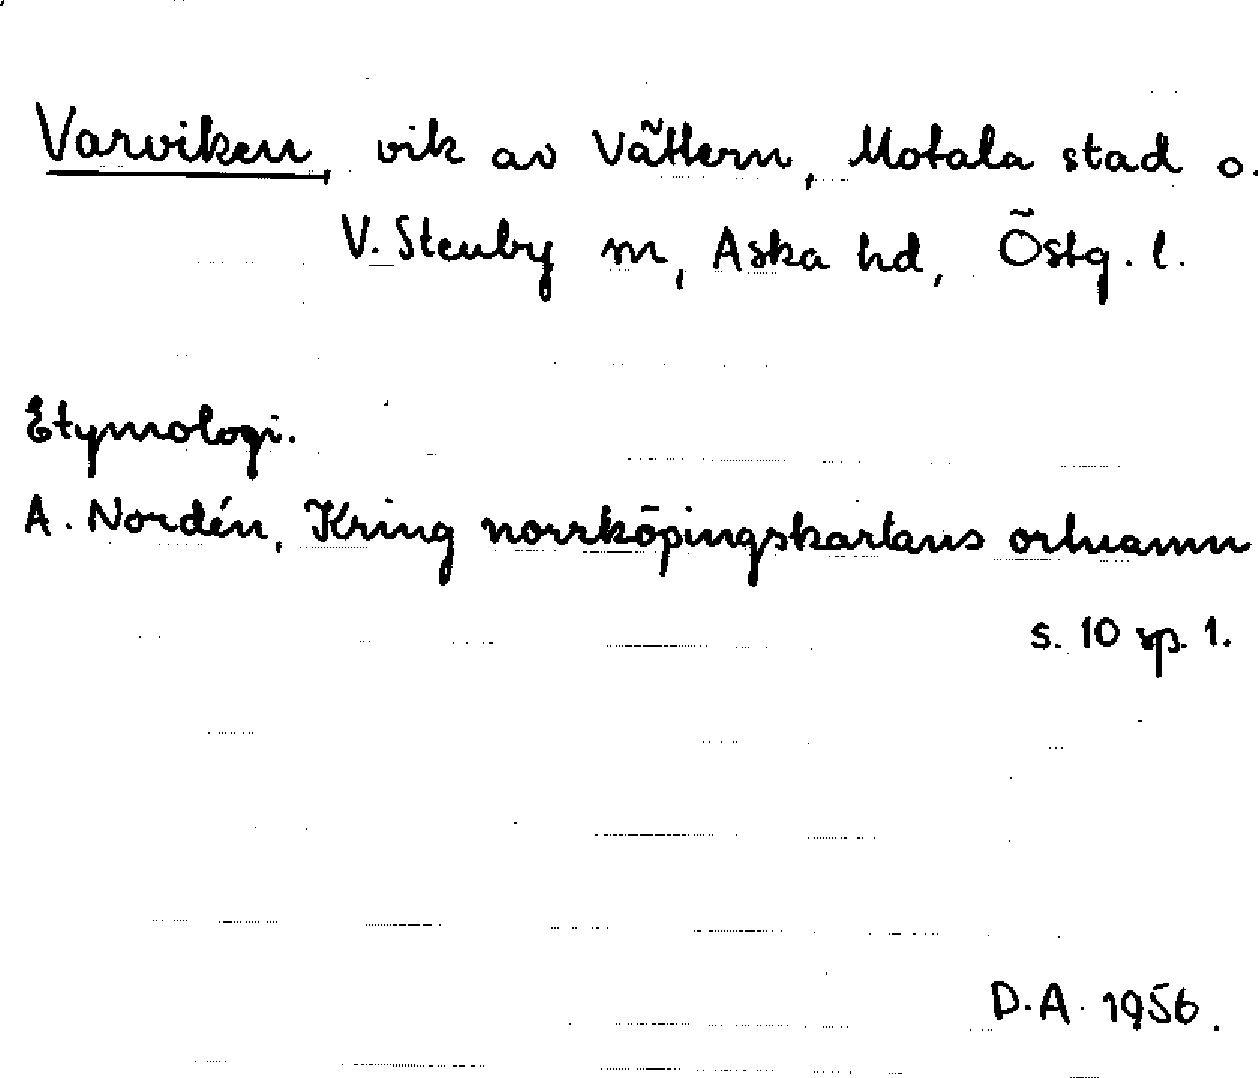 Varviken, vik av Vättern, Motala stad o.
V. Stenby m, Aska hd, Östg. l.
Etymologi.
A. Nordén, Kring norrköpingskartans ortnamn
s. 10 sp. 1.
D.A. 1956.